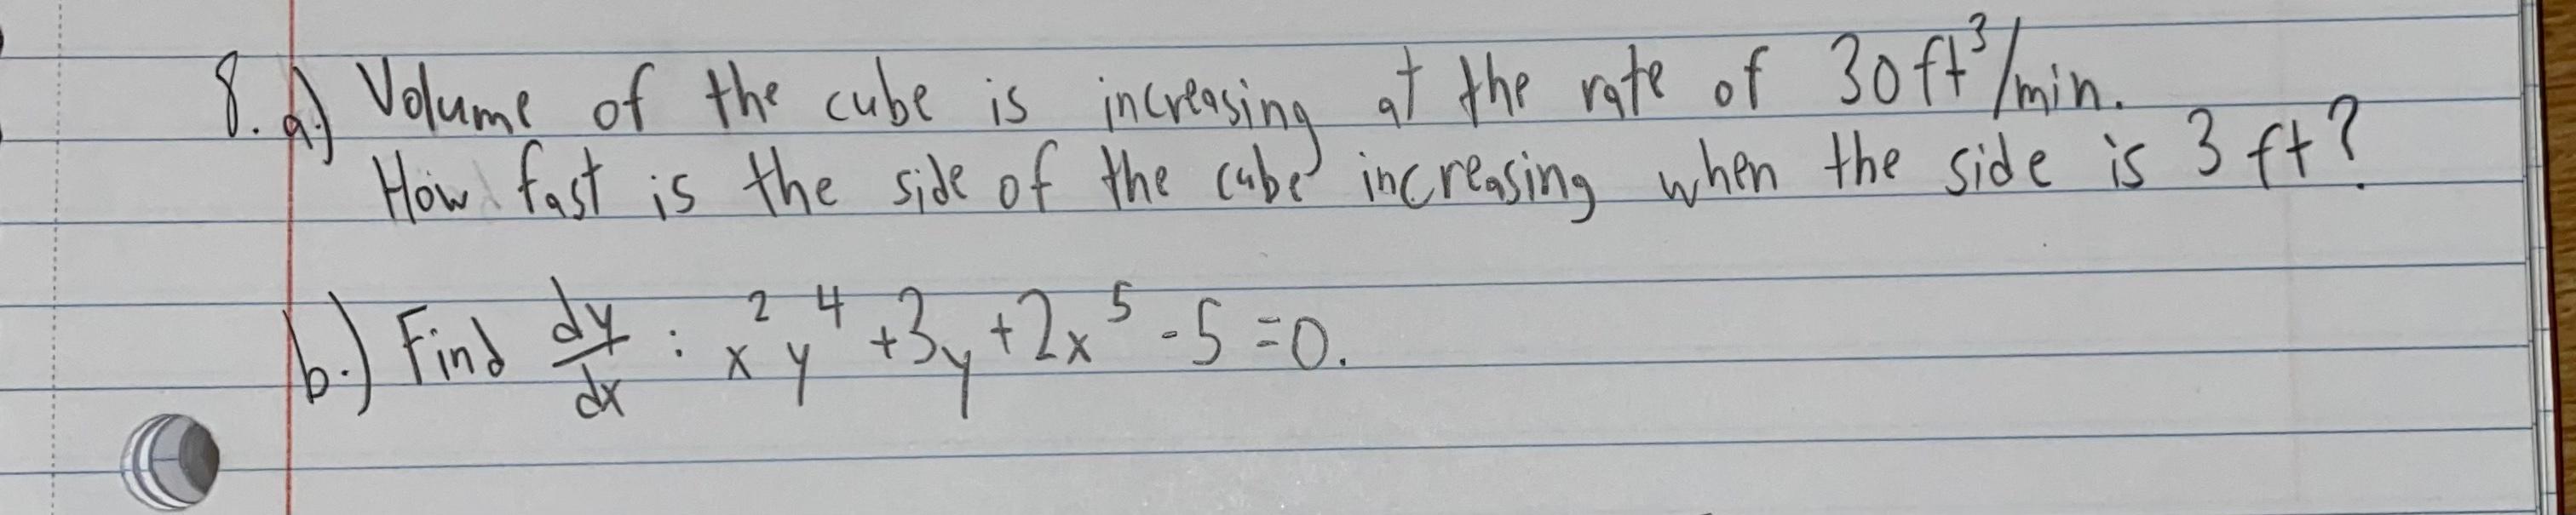 8. a.) Volume of the cube is increasing at the rate of 30 ft³/min.
How fast is the side of the cube increasing when the side is 3 ft?
b.) Find dy/dx : x²y⁴ + 3y + 2x⁵ - 5 = 0.